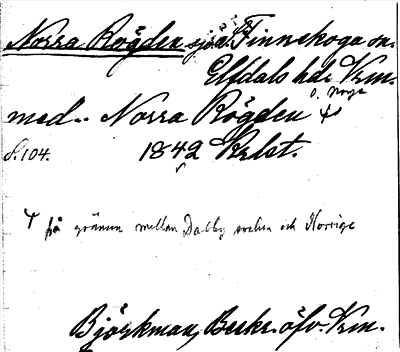 Norra Rögden sjö i Finnskoga sn.
Elfdals hd. Vrm.
o. Norge
med.. Norra Rögden +
S. 104. 1842 Krlst.
+ på gränsen mellan Dalby socken och Norrige
Björkman, Beskr. öfv. Vrm.